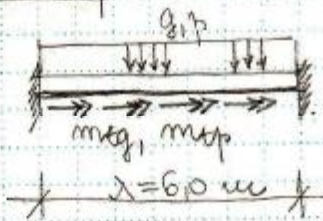 g, p
mtg, mtp
λ=6,0 m